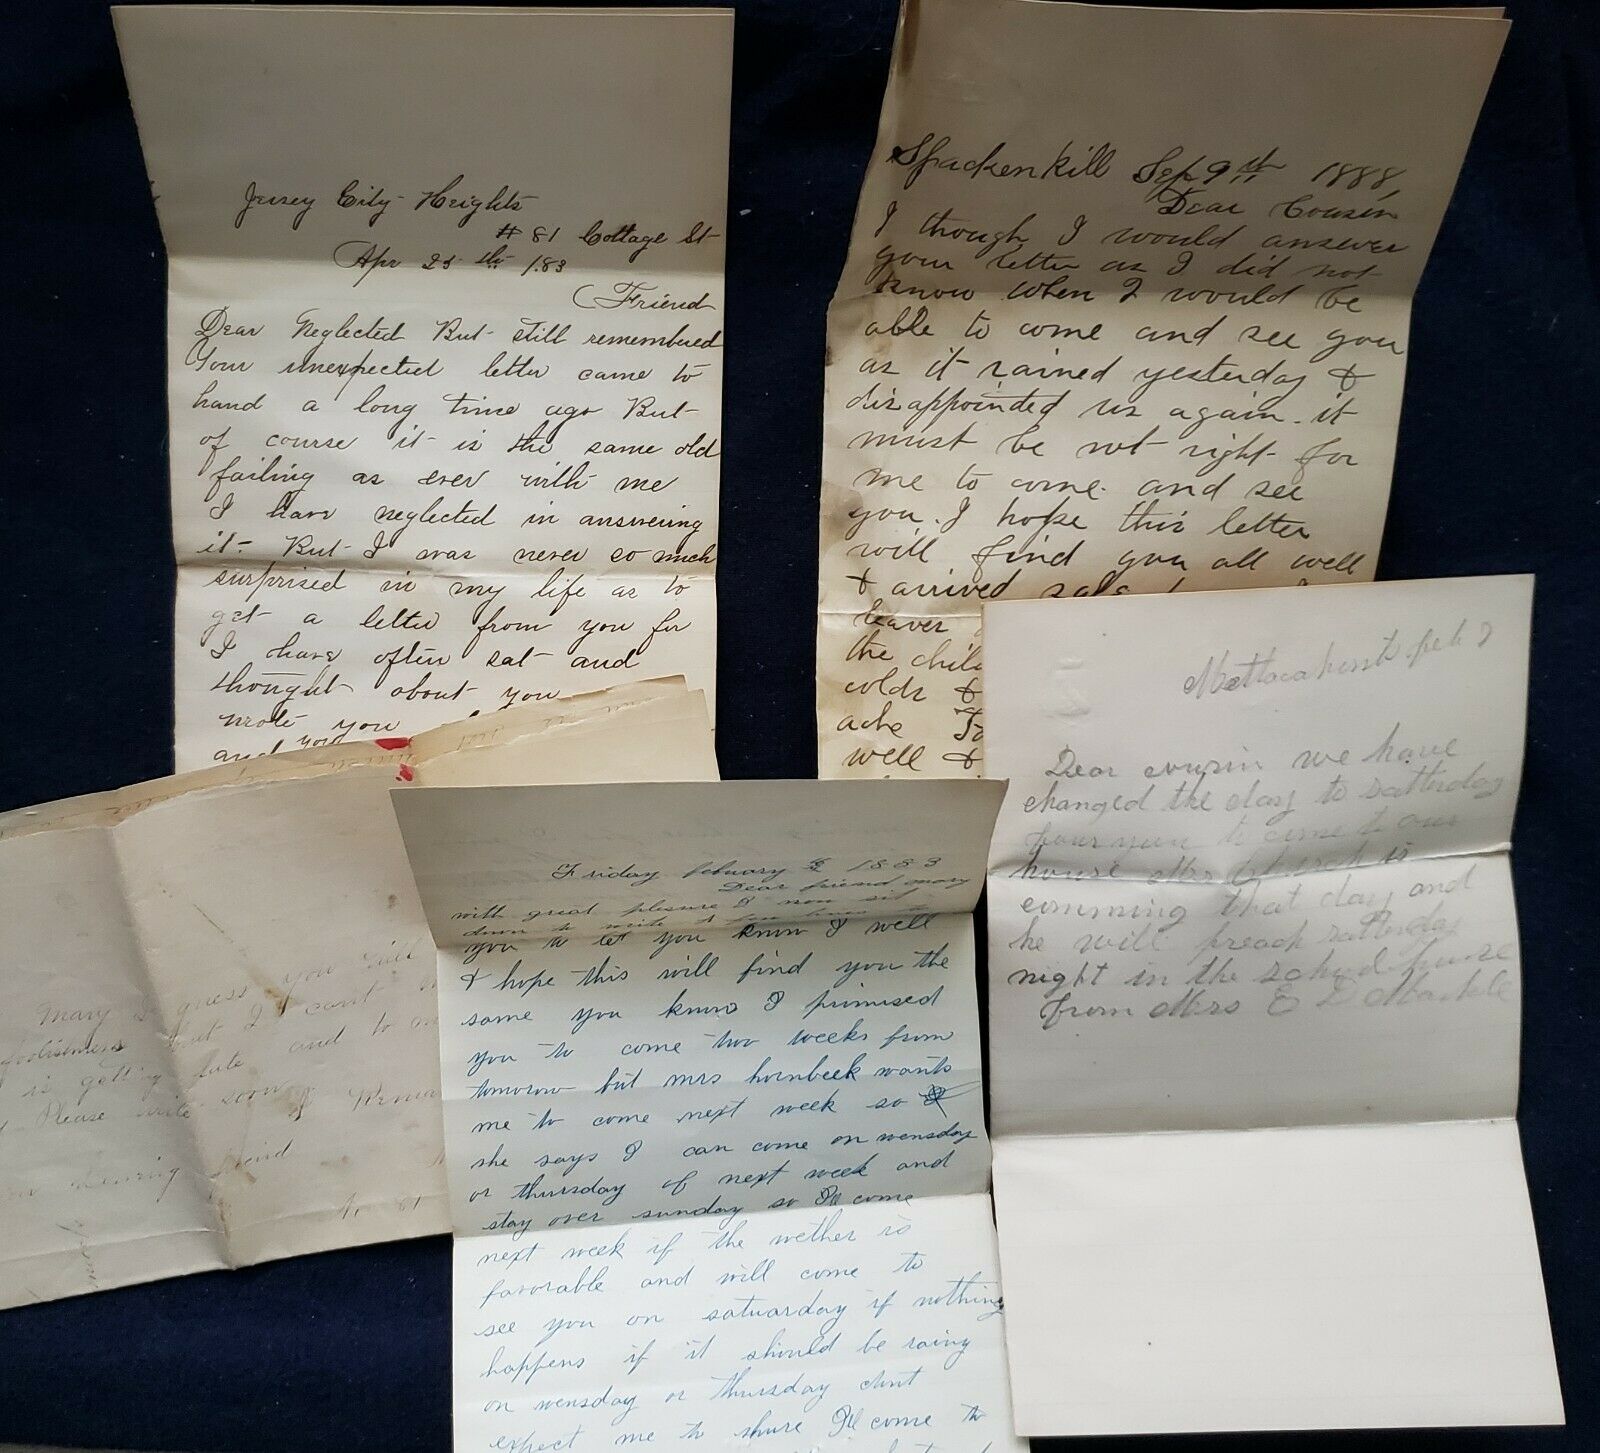 Jersey City Heights
# 81 Cottage St
Apr 25th 1.83
Friend
Dear Neglected But still remembered
Your unexpected letter came to
hand a long time ago But
of course it is the same old
failing as ever with me
I have neglected in answering
it. But I was never so much
surprised in my life as to
get a letter from you for
I have often sat and
thought about you
wrote you
and your
Spackenkill Sep 9th 1888,
Dear Cousin
I though I would answer
your letter as I did not
know when I would be
able to come and see you
as it rained yesterday &
disappointed us again. it
must be not right for
me to come and see
you. I hope this letter
will find you all well
& arrived safe
leaver
the chil
colds &
ache
well &
Mettacahonts feb 7
Dear cousin we have
changed the day to Satterday
four you to come to our
house Mrs Church is
comming that day and
he will preach satterday
night in the school house
from Mrs E D Markle
Mary I guess you will
foolishness but I cant
is getting late and to
Please write soon
I Remai
Friend
Friday febuary 2 1883
Dear friend mary
with great plesure I now sit
down to write a few lines to
you to let you know I well
& hope this will find you the
same you know I promised
you to come two weeks from
tomorow but mrs hornbeek wants
me to come next week so
she says I can come on wensday
or thursday of next week and
stay over sunday so I'll come
next week if the wether is
favorable and will come to
see you on satuarday if nothing
happens if it should be rainy
on wensday or thursday dont
expect me to shure I'll come to